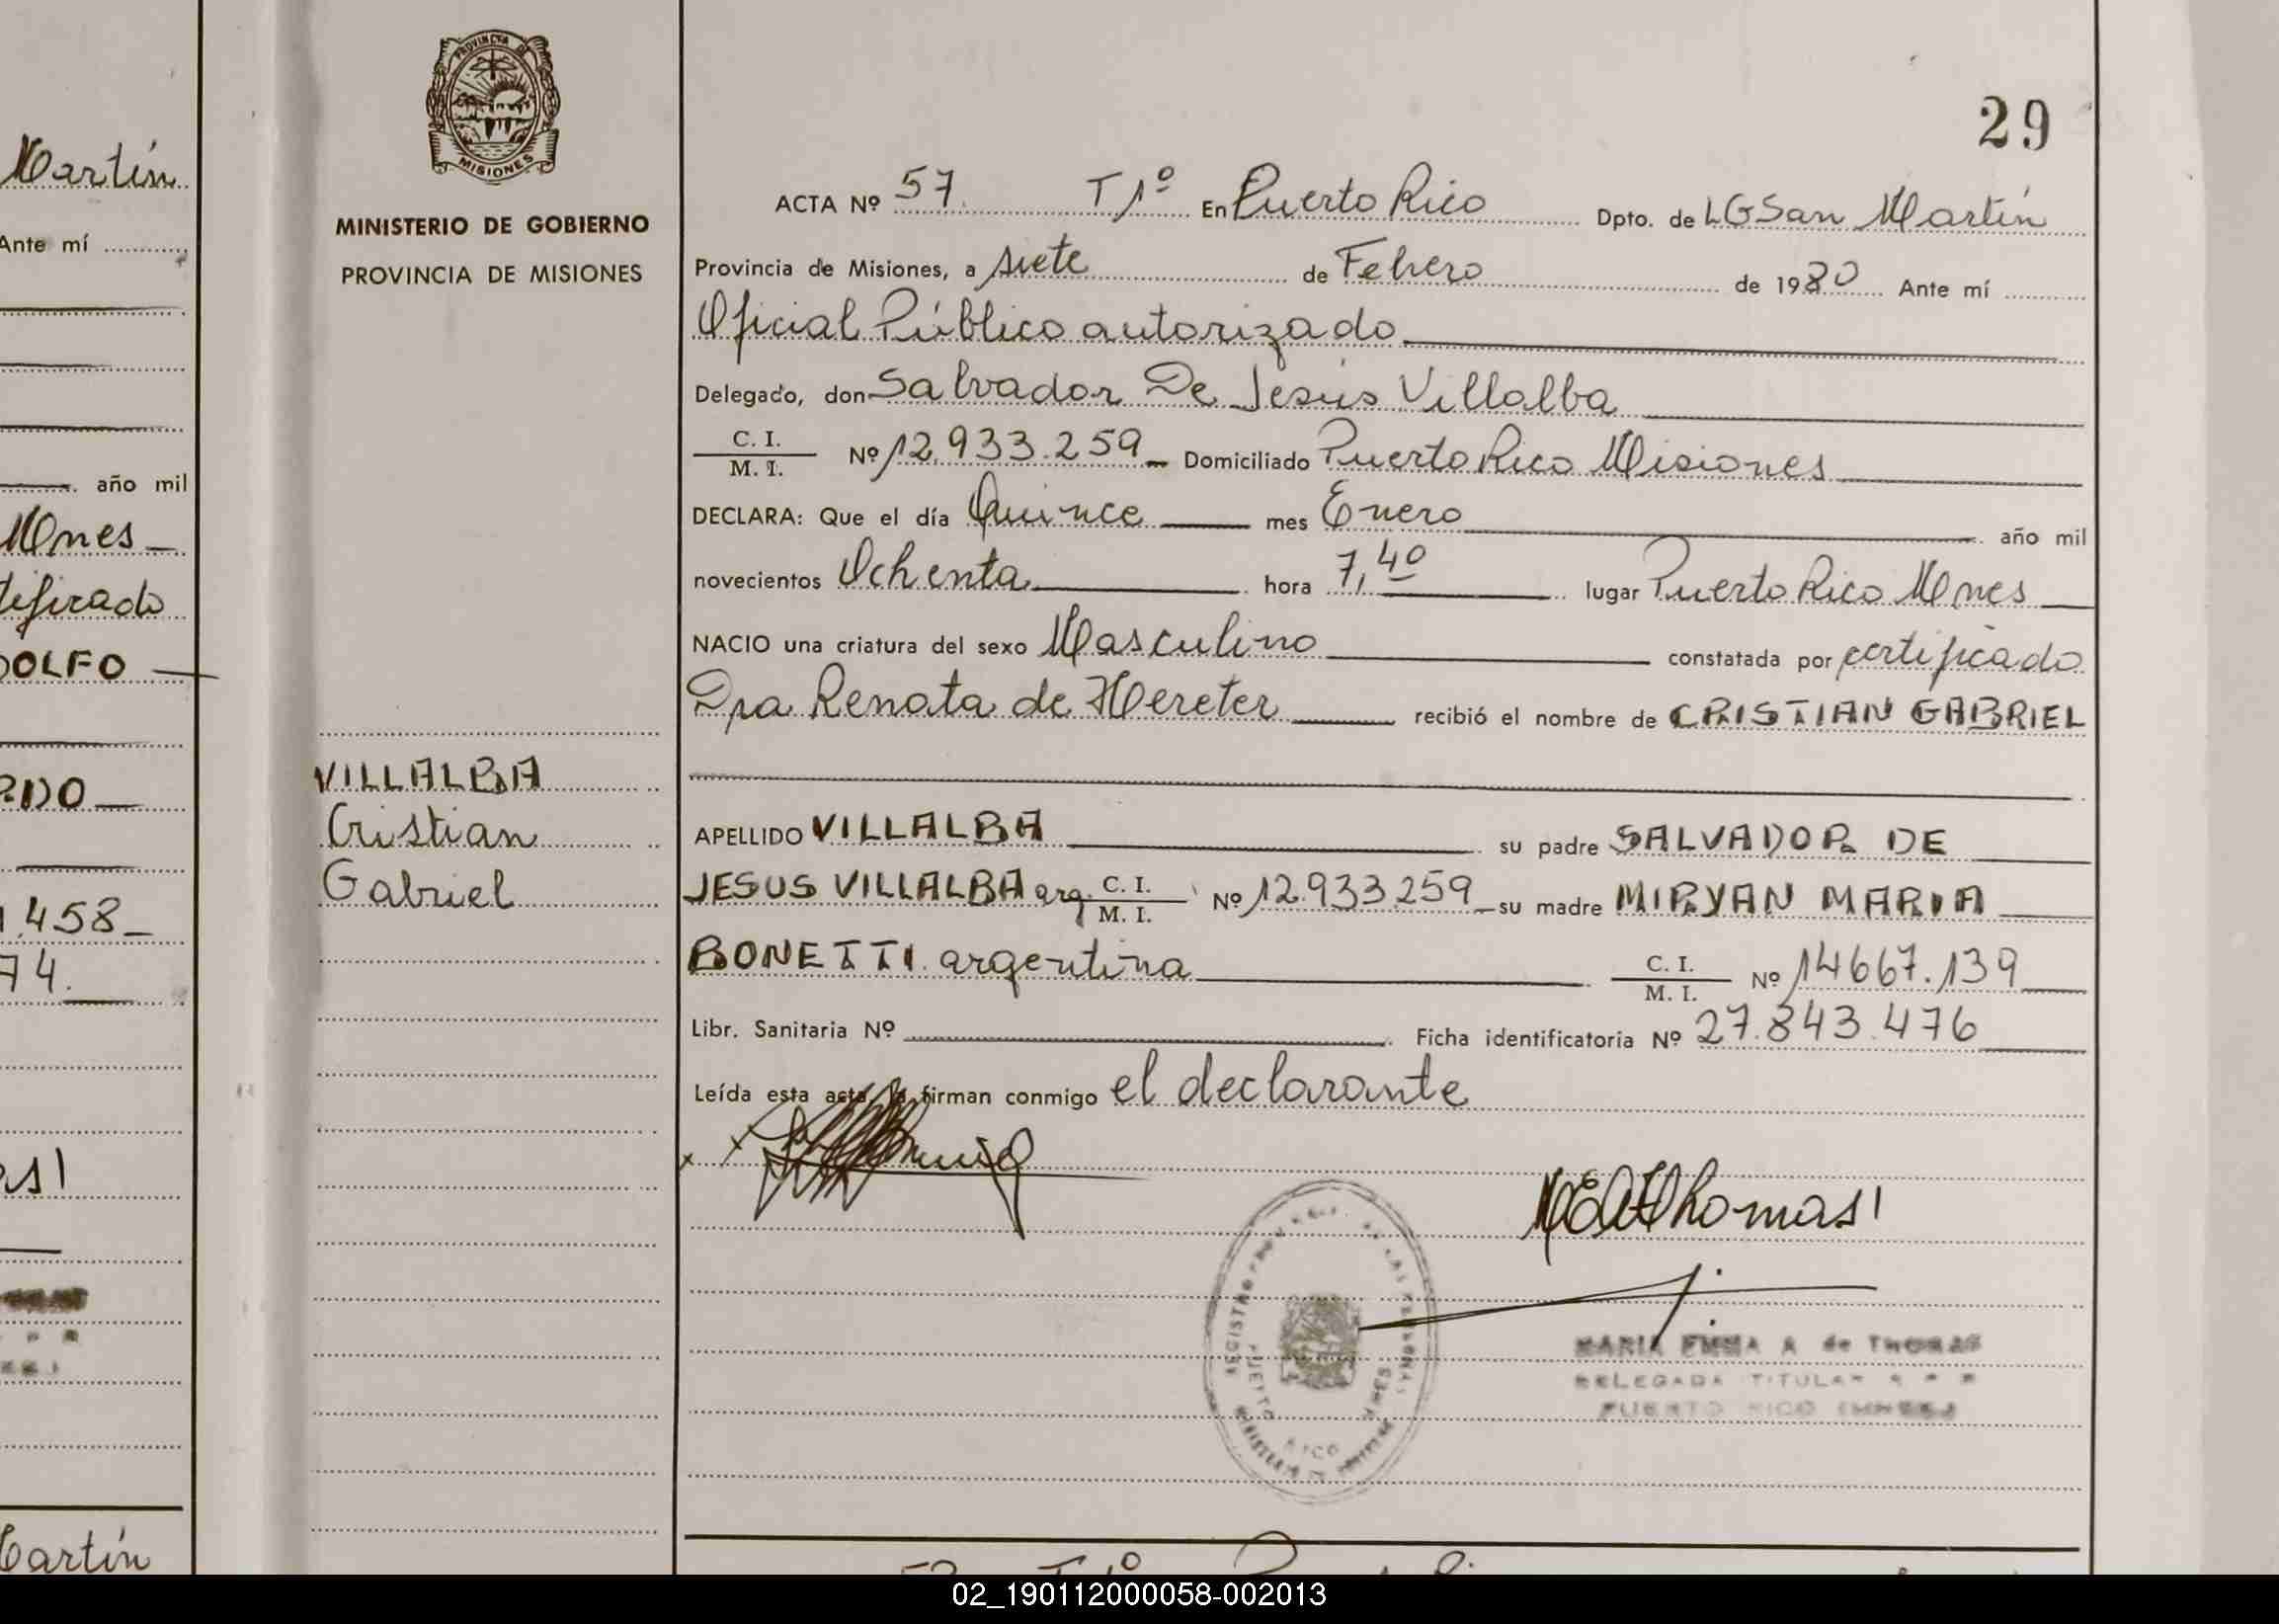 Martín
Ante mí
año mil
Mnes
tificado
DOLFO
RDO
1.458
74.
PROVINCIA DE
MISIONES
MINISTERIO DE GOBIERNO
PROVINCIA DE MISIONES
VILLALBA
Cristian
Gabriel
29
ACTA Nº 57. T 1º En Puerto Rico Dpto. de LGSan Martín
Provincia de Misiones, a siete de Febrero de 1980 Ante mí
Oficial Público autorizado
Delegado, don Salvador De Jesús Villalba
C. I. / M. I. Nº 12.933.259 Domiciliado Puerto Rico Misiones
DECLARA: Que el día Quince mes Enero año mil
novecientos Ochenta hora 7,40 lugar Puerto Rico Mnes
NACIO una criatura del sexo Masculino constatada por certificado
Dra Renata de Hereter recibió el nombre de CRISTIAN GABRIEL
APELLIDO VILLALBA su padre SALVADOR DE
JESUS VILLALBA arg. C. I. / M. I. Nº 12.933.259 su madre MIRYAN MARIA
BONETTI argentina C. I. / M. I. Nº 14667.139
Libr. Sanitaria Nº Ficha identificatoria Nº 27.843.476
Leída esta acta, la firman conmigo el declarante
MEAThomas
REGISTRO
PUERTO RICO
MARIA EMMA A de THOMAS
DELEGADA TITULAR
PUERTO RICO (MNES)
artín
02_190112000058-002013